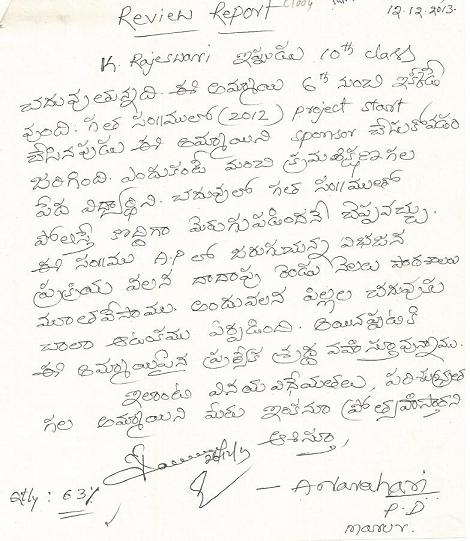 Review Report
12.12.2013.
K. Rajeswari ఇప్పుడు 10th class
చదువుతున్నది. ఈ అమ్మాయి 6th నుంచి ఇక్కడే
వుంది. గత సం॥ములో (2012) project start
చేసినపుడు ఈ అమ్మాయిని sponsor చేసుకోవడం
జరిగింది. ఎందుకంటే మంచి క్రమశిక్షణ గల
పేద విద్యార్థిని. చదువులో గత సం॥ముతో
పోలుస్తే కొద్దిగా మెరుగుపడిందనే చెప్పవచ్చు.
ఈ సం॥ము A.P లో జరుగుచున్న విభజన
ప్రక్రియ వలన దాదాపు రెండు నెలలు పాఠశాలలు
మూతవేసాము. అందువలన పిల్లల చదువుకు
చాలా ఆటంకము ఏర్పడింది. అయినప్పటికి
ఈ అమ్మాయిపైన ప్రత్యేక శ్రద్ధ వహిస్తూవున్నాము.
ఇలాంటి వినయ విధేయతలు, పరిశుభ్రత
గల అమ్మాయిని మీరు ఇంకనూ ప్రోత్సహిస్తారని
ఆశిస్తూ,
Qtly : 63%
P.D.